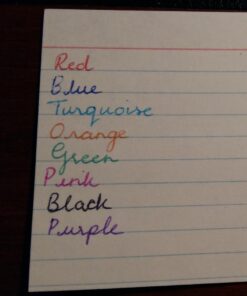 Red
Blue
Turquoise
Orange
Green
Pink
Black
Purple